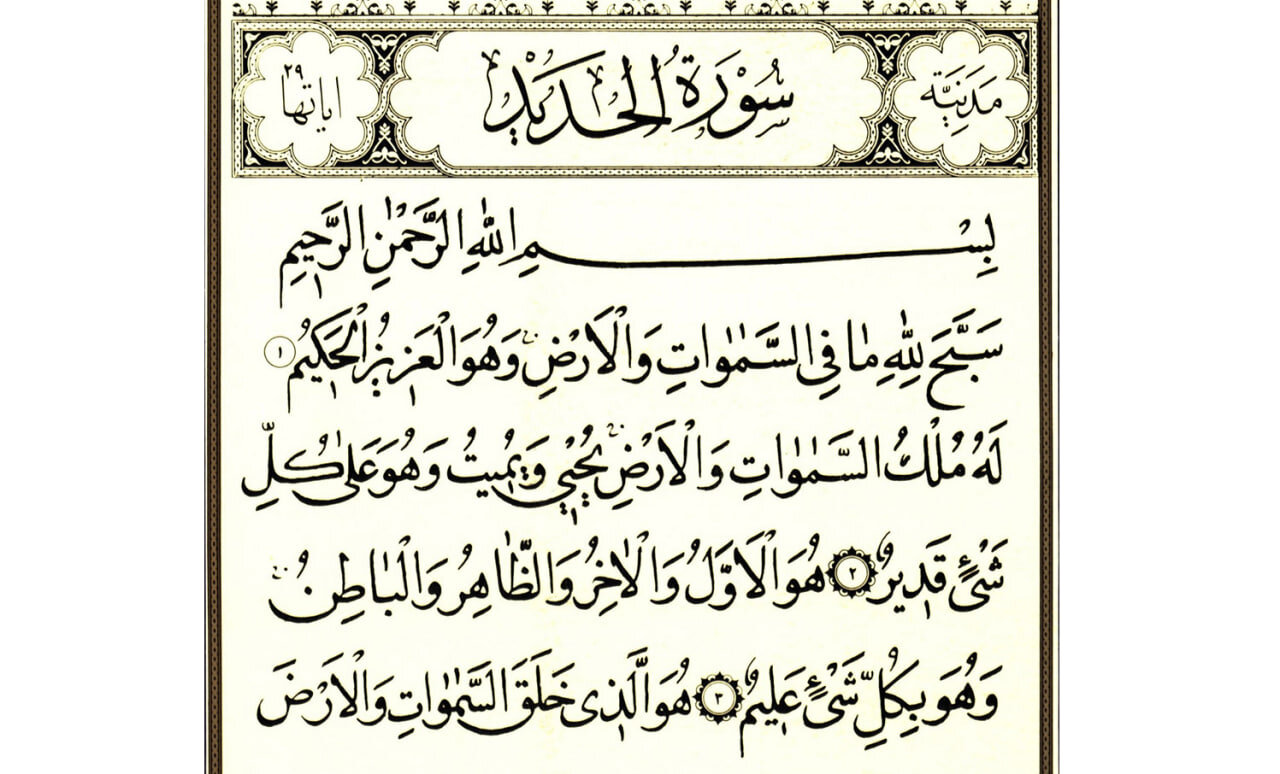 مَدَنِيَّة سُورَةُ الْحَدِيدِ اياتها ٢٩
بِسْمِ اللّٰهِ الرَّحْمٰنِ الرَّحِيمِ
سَبَّحَ لِلّٰهِ مَا فِى السَّمٰوَاتِ وَالْاَرْضِۚ وَهُوَ الْعَزِيزُ الْحَكِيمُ ١
لَهُ مُلْكُ السَّمٰوَاتِ وَالْاَرْضِۚ يُحْيِي وَيُمِيتُ وَهُوَ عَلٰى كُلِّ
شَىْءٍ قَدِيرٌ ٢ هُوَ الْاَوَّلُ وَالْاٰخِرُ وَالظَّاهِرُ وَالْبَاطِنُۚ
وَهُوَ بِكُلِّ شَىْءٍ عَلِيمٌ ٣ هُوَ الَّذِى خَلَقَ السَّمٰوَاتِ وَالْاَرْضَ